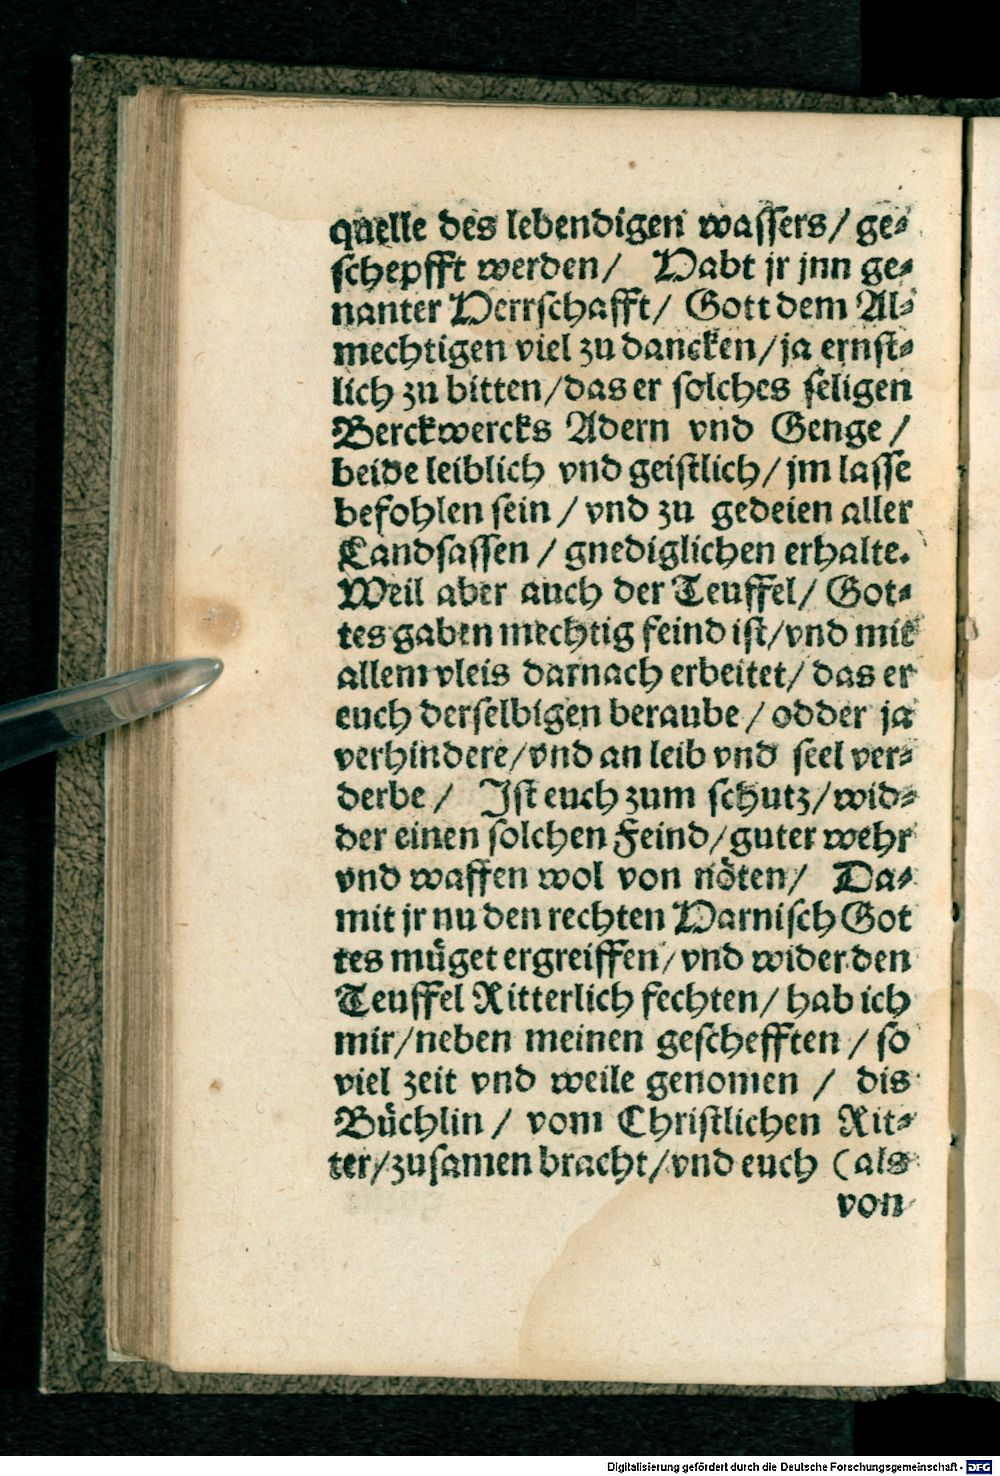 quelle des lebendigen wassers/ ge⸗
schepfft werden/ Habt jr jnn ge⸗
nanter Herrschafft/ Gott dem Al⸗
mechtigen viel zu dancken/ja ernst⸗
lich zu bitten/das er solches seligen
Berckwercks Adern vnd Genge/
beide leiblich vnd geistlich/jm lasse
befohlen sein/vnd zu gedeien aller
Landsassen/gnediglichen erhalte.
Weil aber auch der Teuffel/ Got⸗
tes gaben mechtig feind ist/vnd mit
allem vleis darnach erbeitet/das er
euch derselbigen beraube/odder ja
verhindere/vnd an leib vnd seel ver⸗
derbe/ Ist euch zum schutz/wid⸗
der einen solchen Feind/guter wehr
vnd waffen wol von nöten/ Da⸗
mit jr nu den rechten Harnisch Got
tes müget ergreiffen/vnd wider den
Teuffel Ritterlich fechten/hab ich
mir/neben meinen geschefften/so
viel zeit vnd weile genomen/ dis
Büchlin/ vom Christlichen Rit⸗
ter/zusamen bracht/vnd euch (als
von
Digitalisierung gefördert durch die Deutsche Forschungsgemeinschaft - DFG